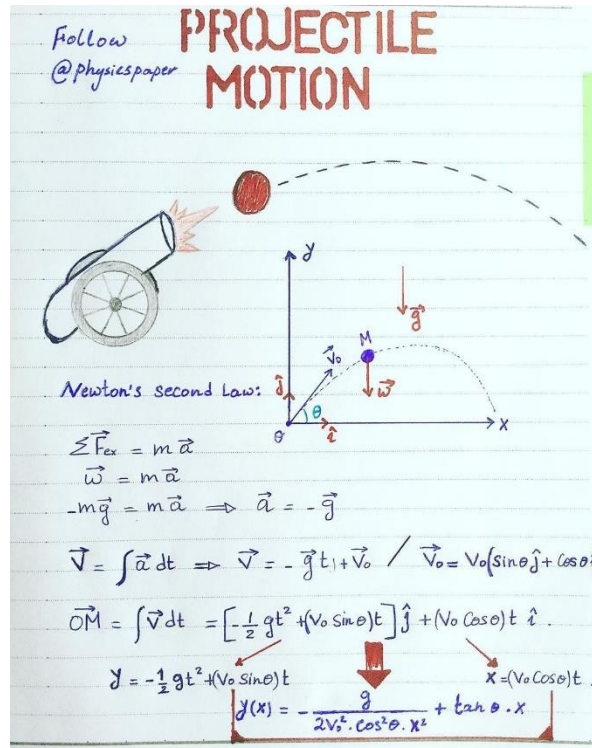 Follow
@physicspaper
PROJECTILE
MOTION
y
g⃗
M
V⃗₀
ĵ
w⃗
θ
O
î
x
Newton's second Law:
ΣF⃗ₑₓ = m a⃗
w⃗ = m a⃗
-mg⃗ = m a⃗ ⇒ a⃗ = - g⃗
V⃗ = ∫ a⃗ dt ⇒ V⃗ = - g⃗ t + V⃗₀ / V⃗₀ = V₀(sinθ ĵ + cosθ
OM⃗ = ∫ V⃗ dt = [-½ gt² + (V₀ Sinθ)t] ĵ + (V₀ Cosθ) t î .
y = -½ gt² + (V₀ sinθ)t
x = (V₀ Cosθ)t
y(x) = - g / (2V₀² . cos²θ . x²) + tan θ . x